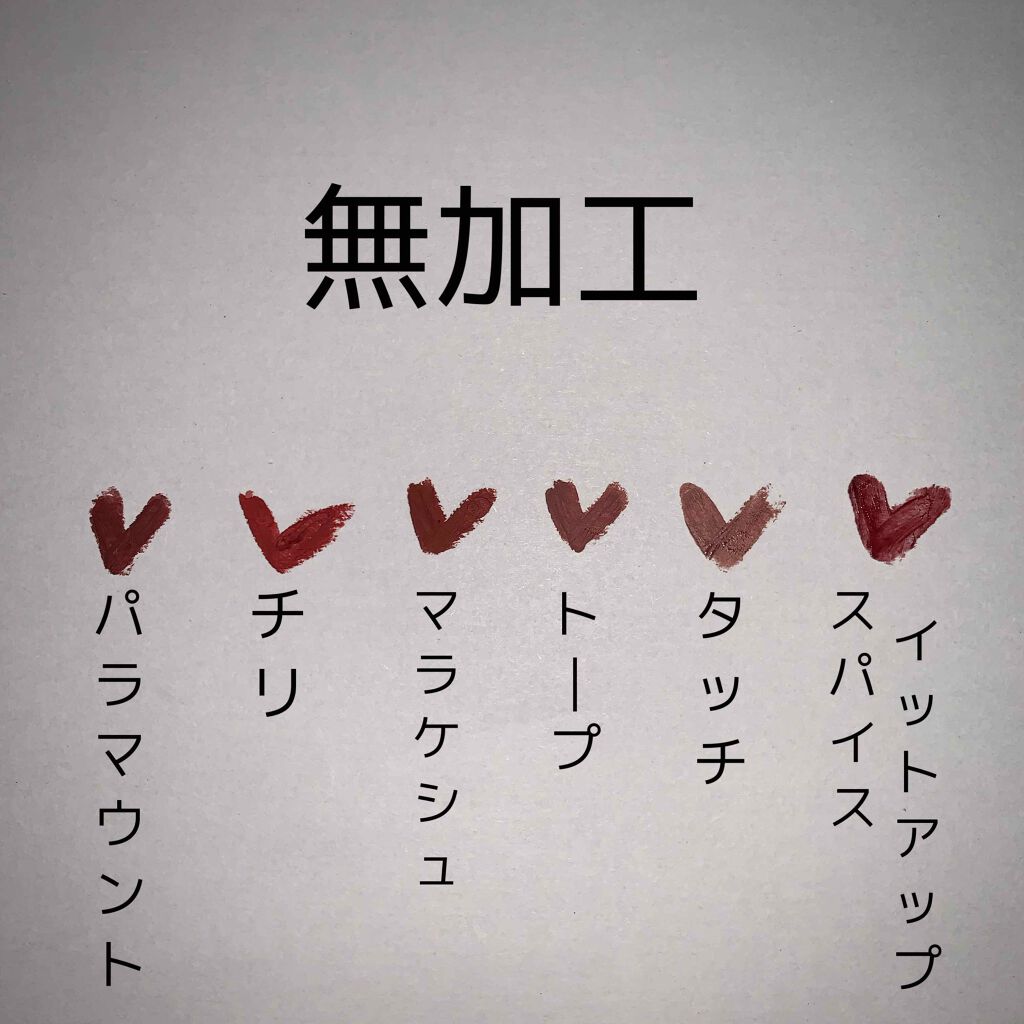 無加工
パラマウント
チリ
マラケシュ
トープ
タッチ
スパイス
イットアップ